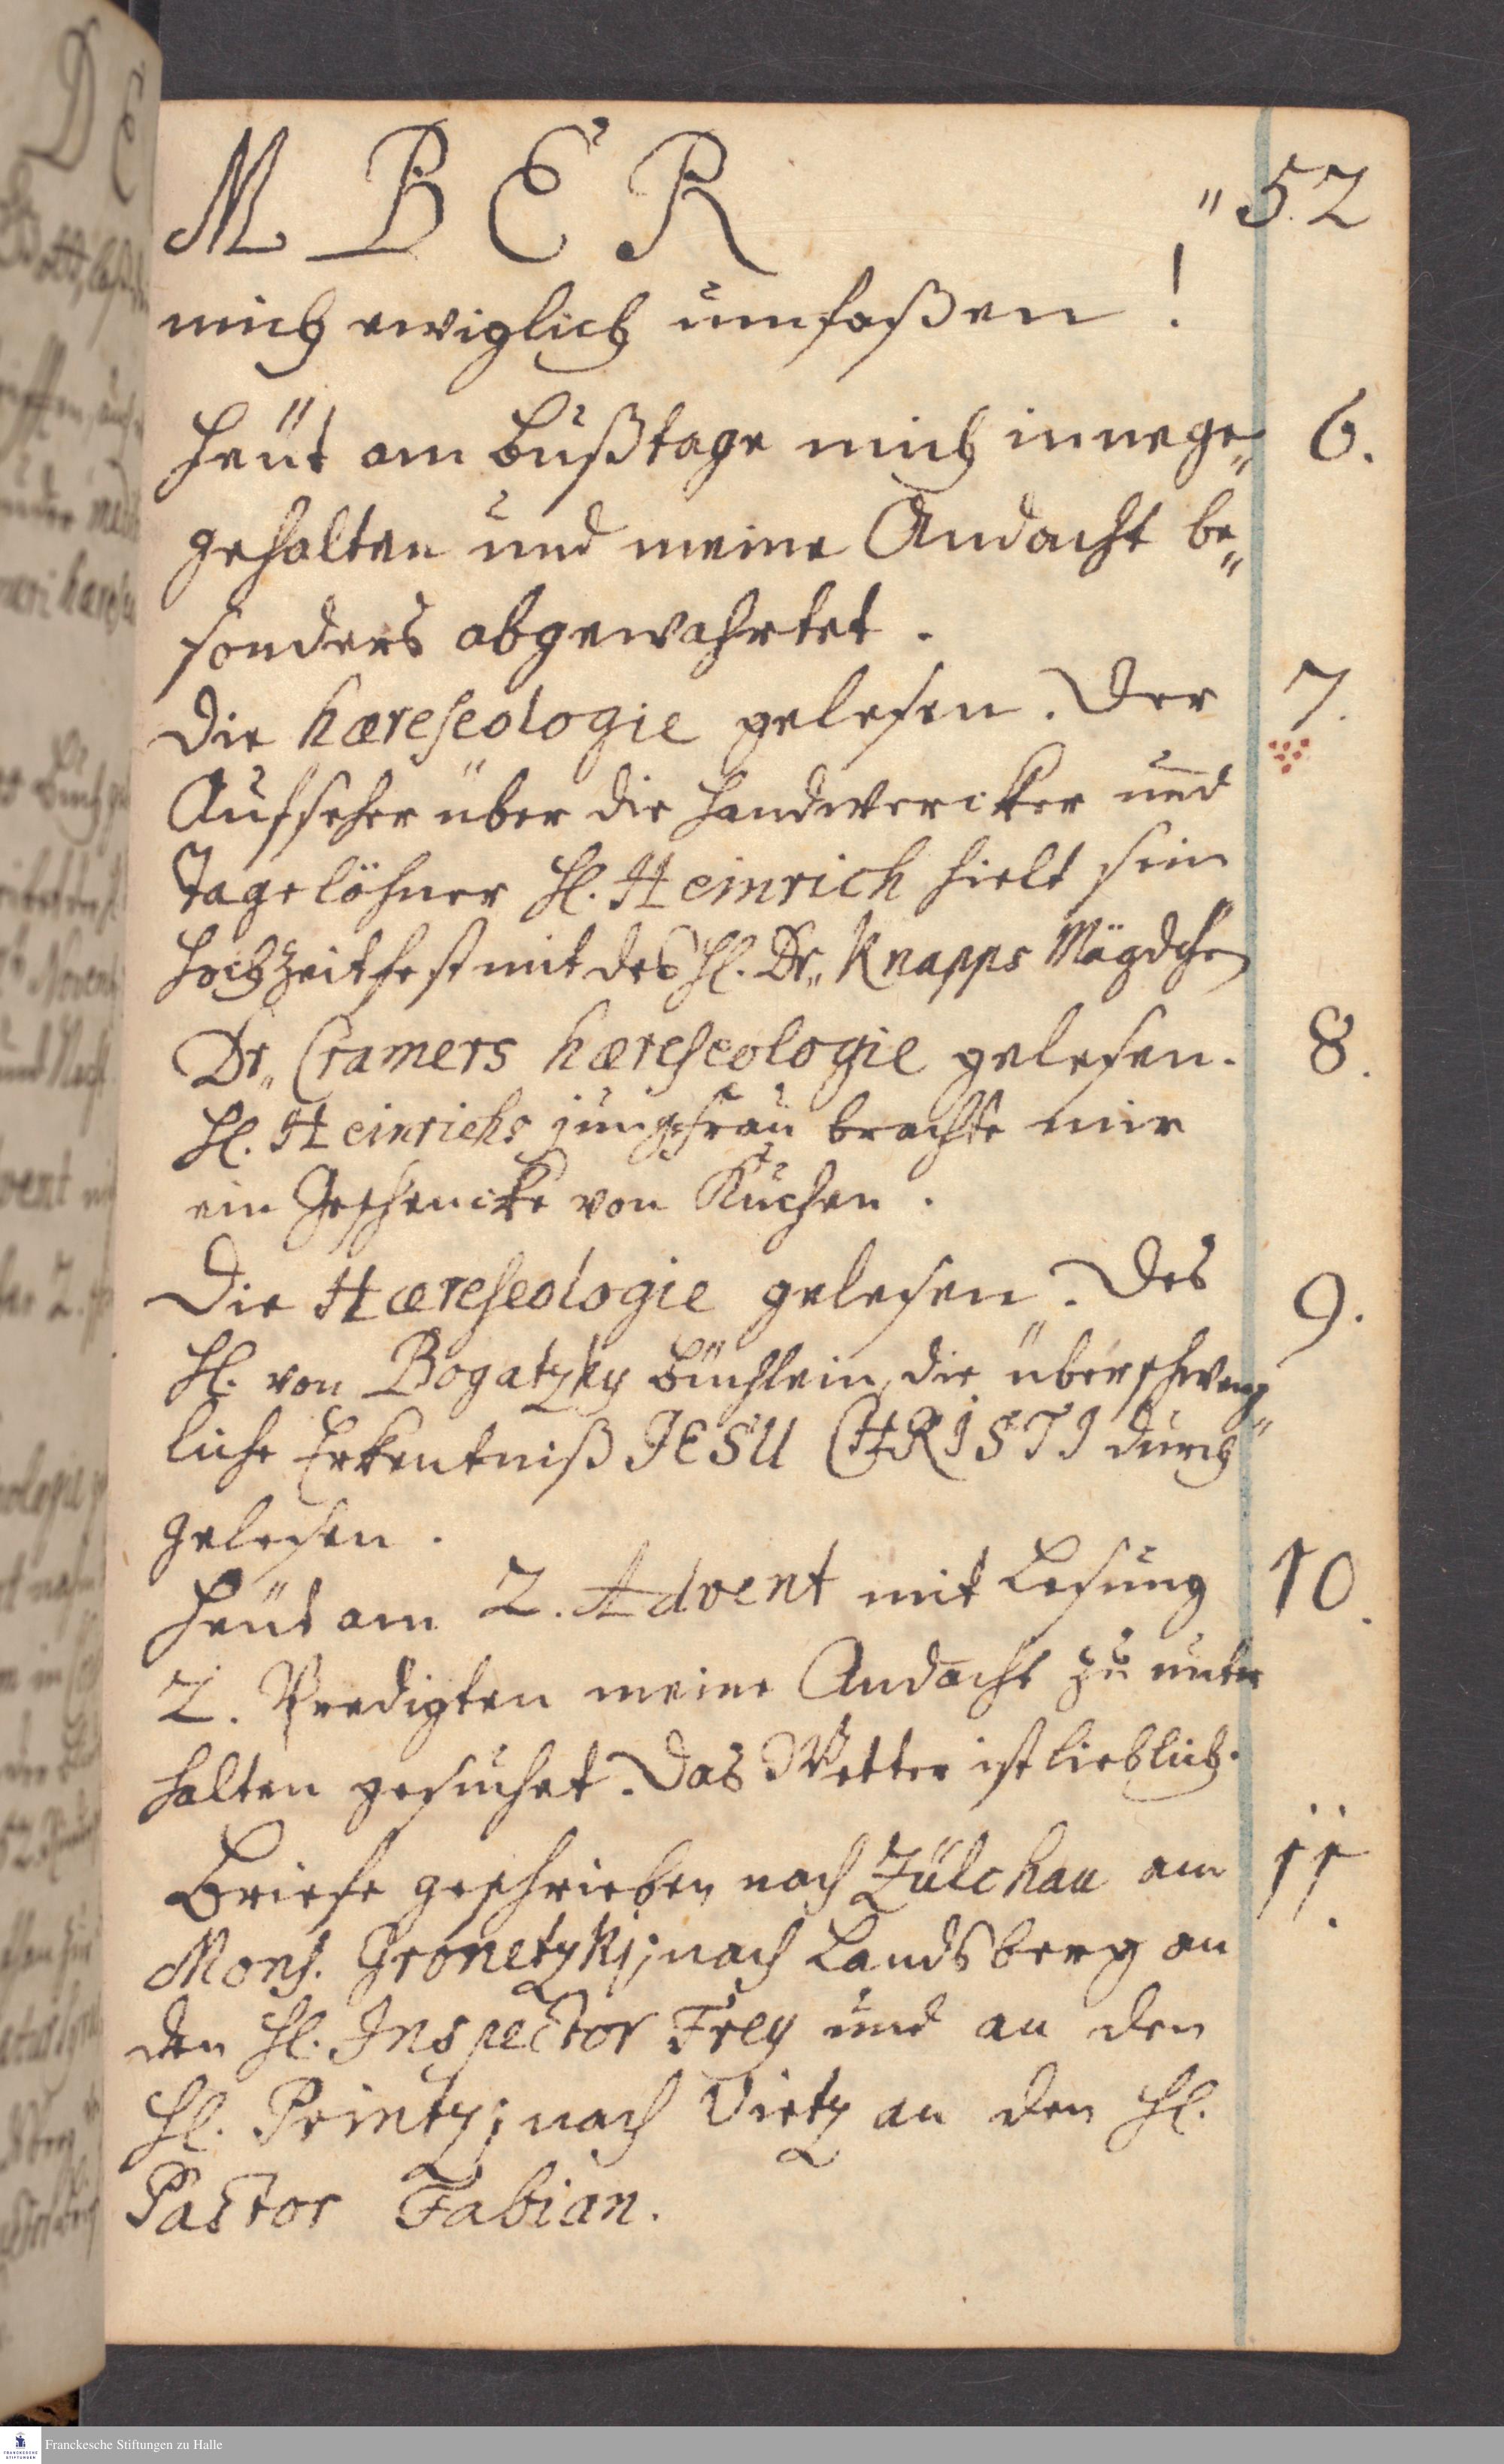 M B E R „ 52
mich ewiglich umfaßen!
Heüt am Bußtage mich innege„ 6.
gehalten und meine Andacht be„
sonders abgewahrtet.
Die hæreseologie gelesen. Der 7.
Aufseher über die Handwercker und
Tagelöhner H. Heinrich hielt sein
Hochzeitfest mit des H. Dr„ Knapps Mägdchen
Dr„ Cramers hæreseologie gelesen. 8.
H. Heinrichs jungefrau brachte mir
ein Geschencke von Kuchen.
Die Hæreseologie gelesen„. Des 9.
H. von Bogatzky Büchlein, die überschweng„
liche Erkentniß JESU CHRISTI durch„
gelesen.
Heüt am 2. Advent mit Lesung 10.
2. Predigten meine Andacht zu unter
halten gesuchet. Das Wetter ist lieblich.
Briefe geschrieben nach Zülchau am 11.
Mons. Gronetzki; nach Landsberg an
den H. Inspector Frey und an den
H. Printz; nach Vietz an den H.
Pastor Fabian.
Franckesche Stiftungen zu Halle